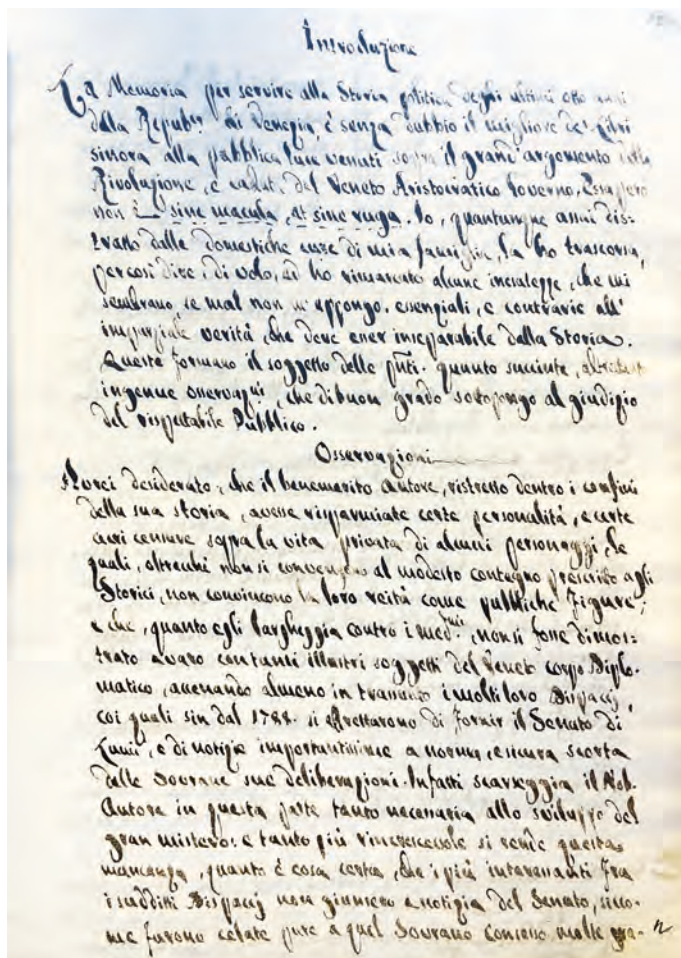 Introduzione
La Memoria per servire alla Storia politica degli ultimi otto anni
della Repub.ca di Venezia, è senza dubbio il migliore de' Libri
sinora alla pubblica luce venuti sopra il grand' argomento della
Rivoluzione, e cadut. del Veneto Aristocratico Governo. Essa però
non è sine macula, at sine ruga. Io, quantunque assai dis=
tratto dalle domestiche cure di mia famiglia, la ho trascorsa,
per così dire, di volo, ed ho rimarcato alcune inesatezze, che mi
sembrano, se mal non m'appongo, essenziali, e contrarie all'
imparziale verità, che deve esser inseparabile dalla Storia.
Queste formano il soggetto delle pñti. quanto succinte, altretanto
ingenue osservazni, che di buon grado sottopongo al giudizio
del rispettabile Pubblico.
Osservazioni
Avrei desiderato, che il benemerito Autore, ristretto dentro i confini
della sua storia, avesse risparmiate certe personalità, e certe
acri censure sopra la vita privata di alcuni personaggi, le
quali, oltrechè non si convengono al modesto contegno prescritto agli
Storici, non convincono la loro reità come pubbliche Figure;
e che, quanto egli largheggia contro i med.mi, non si fosse dimos=
trato avaro con tanti illustri soggetti del Veneto corpo Diplo-
matico, accennando almeno in transunto i molti loro Dispacj,
coi quali sin dal 1788. si affrettarono di fornir il Senato di
Lumi, e di notizie importantissime a norma, e sicura scorta
delle Sovrane sue deliberazioni. Infatti scarseggia il Nob.
Autore in questa parte tanto necessaria allo sviluppo del
gran mistero: e tanto più rincrescevole si rende questa
mancanza, quanto è cosa certa, che i più interessanti fra
i sudditti Dispacj non giunsero a notizia del Senato, sico-
me furono celate pure a quel Sovrano Consesso molte gra-